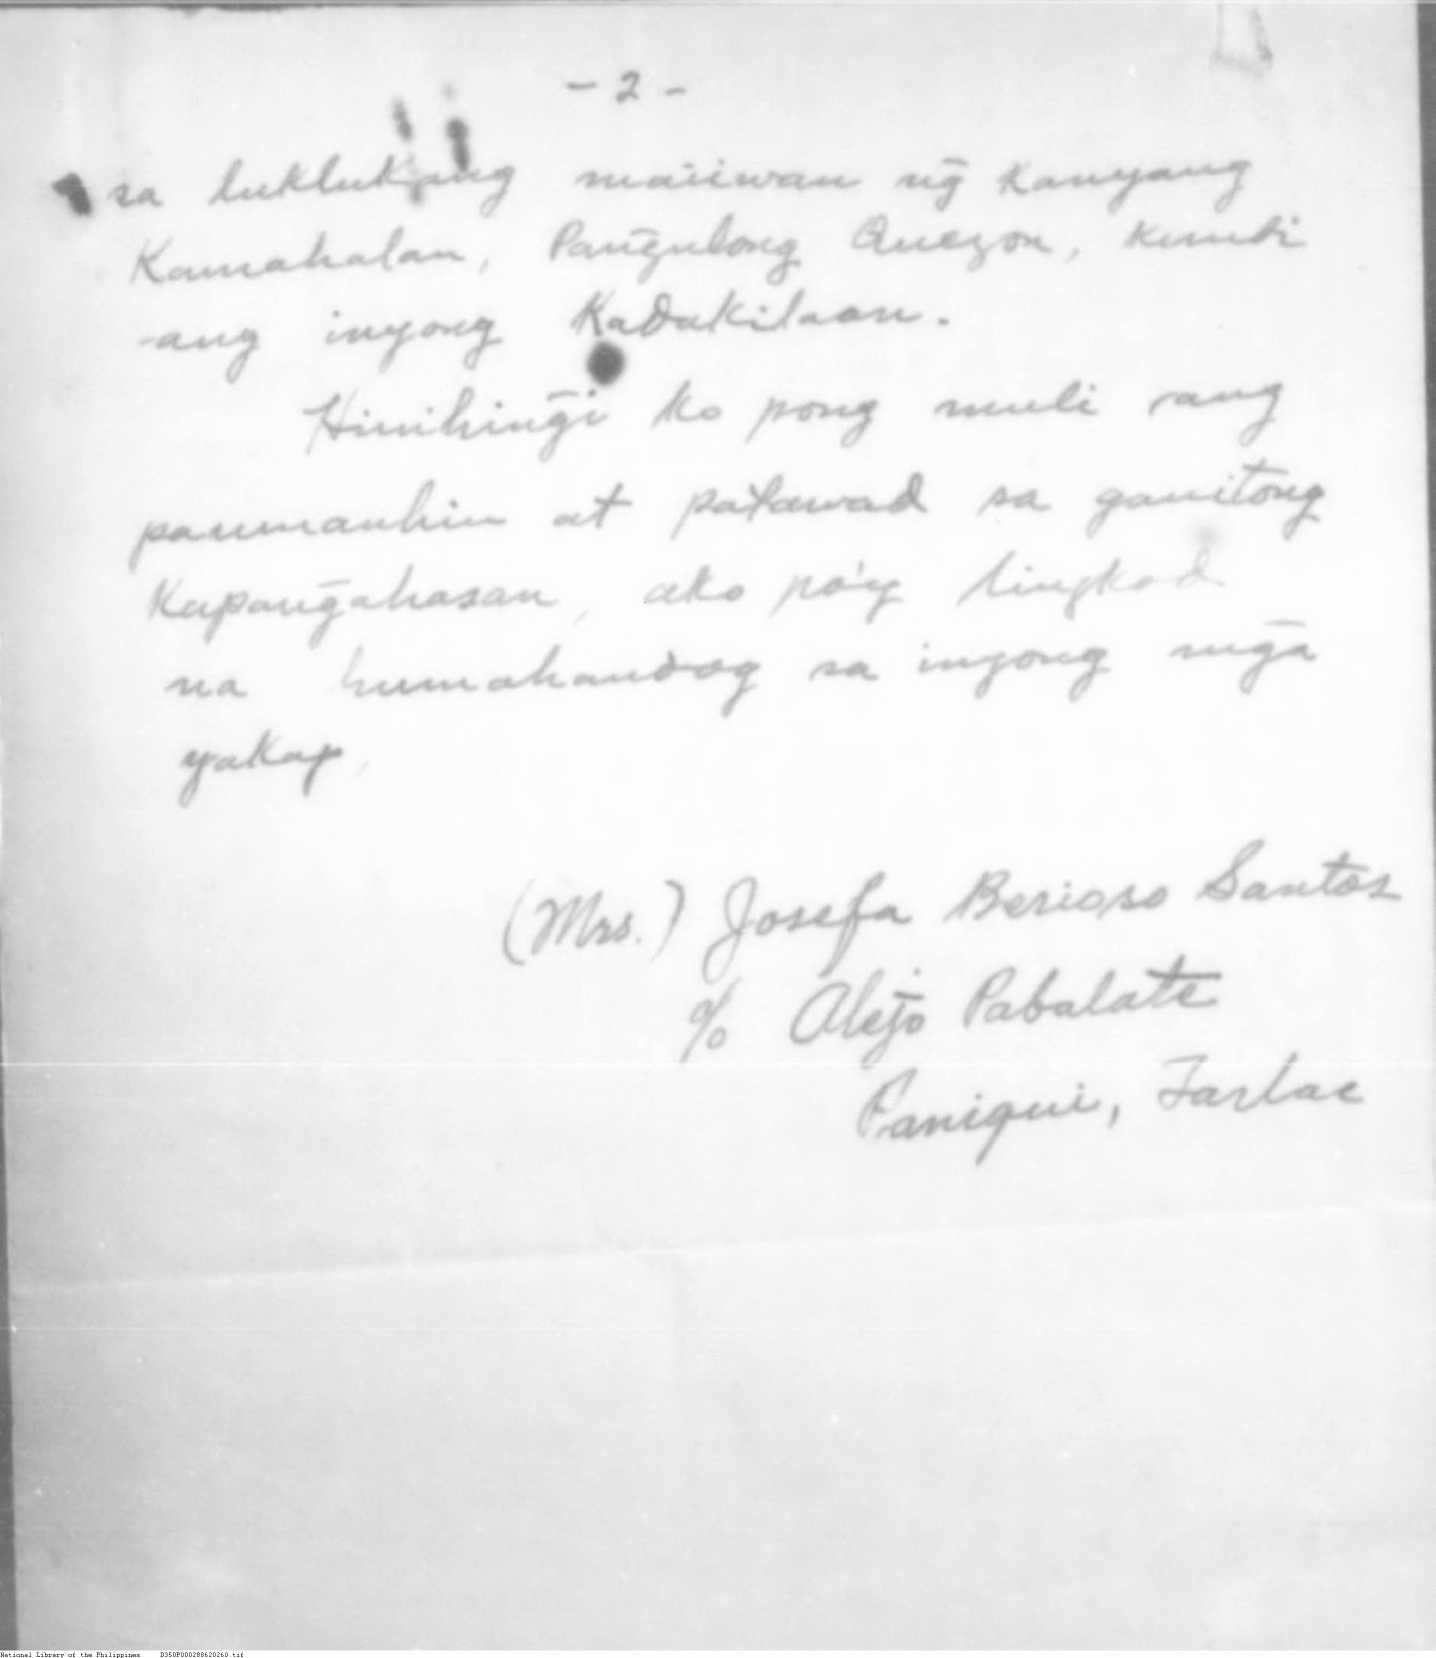 - 2 -
sa luklukang maiiwan ng̃ Kanyang
Kamahalan, Pang̃ulong Quezon, kundi
ang inyong Kadakilaan.
Hinihing̃i ko pong muli ang
paumanhin at patawad sa ganitong
Kapang̃ahasan, ako po'y lingkod
na humahandog sa inyong mg̃a
yakap,
(Mrs.) Josefa Berioso Santos
c/o Alejo Pabalate
Paniqui, Tarlac
National Library of the Philippines D350P000288620260.tif